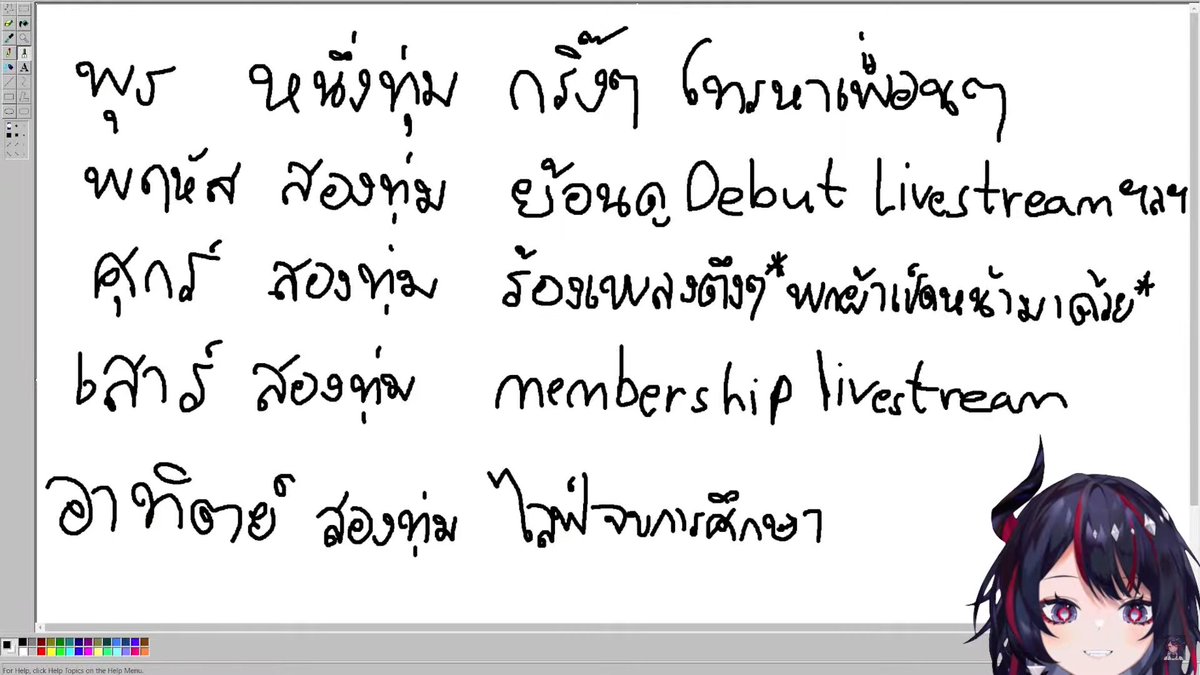 พุธ หนึ่งทุ่ม กริ๊งๆ โทรหาเพื่อนๆ
พฤหัส สองทุ่ม ย้อนดู Debut Livestream ฯลฯ
ศุกร์ สองทุ่ม ร้องเพลงตึงๆ *พกผ้าเช็ดหน้ามาด้วย*
เสาร์ สองทุ่ม membership livestream
อาทิตย์ สองทุ่ม ไลฟ์จบการศึกษา
For Help, click Help Topics on the Help Menu.